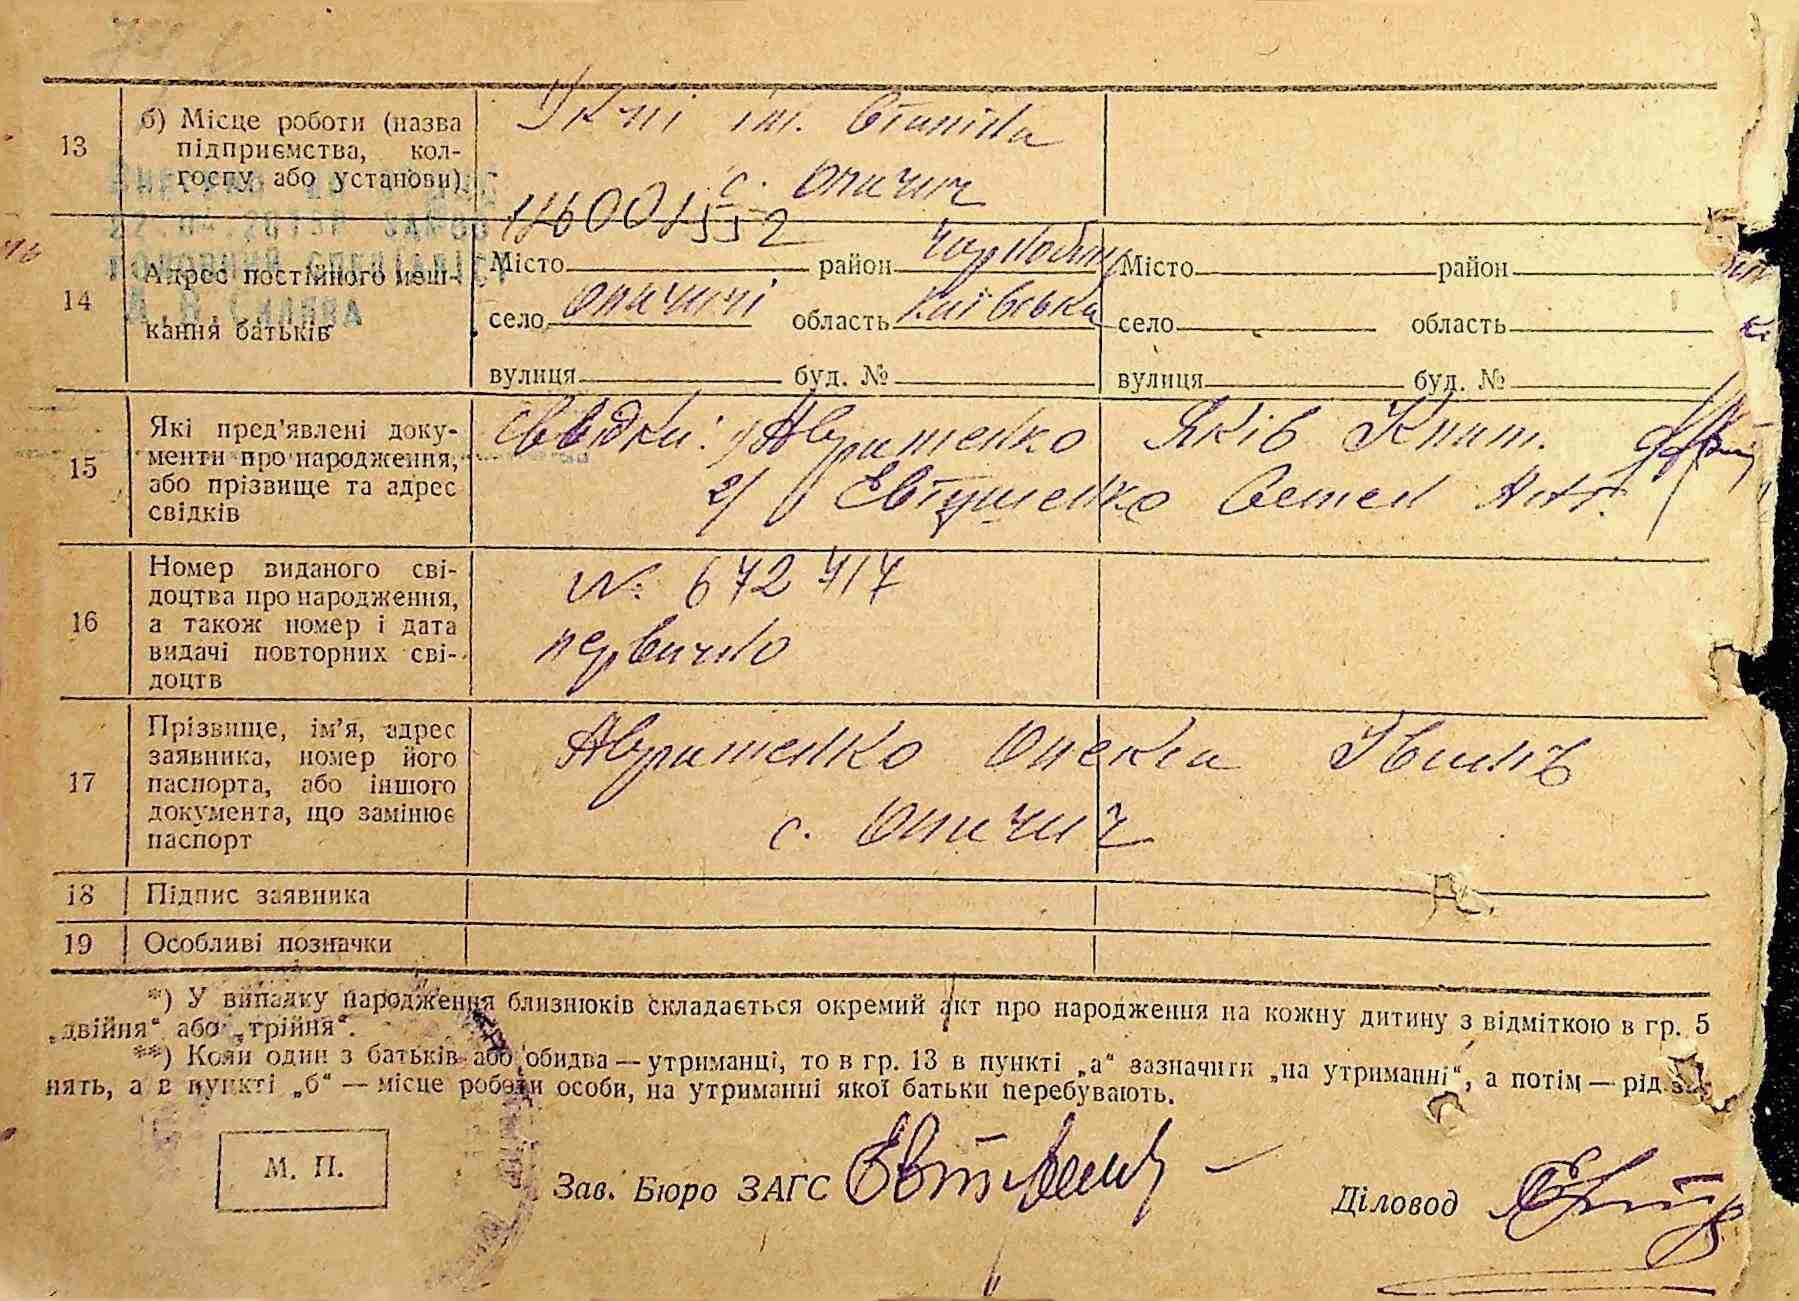 13
б) Місце роботи (назва
підприємства, кол-
госпу або установи)
ім. Сталіна
с. Опачич
14
Адрес постійного меш-
кання батьків
Місто район Чорнобил
село Опачичі область Київська
вулиця буд. №
Місто район
село область
вулиця буд. №
15
Які пред'явлені доку-
менти про народження,
або прізвище та адрес
свідків
Свідки: 1) Авраменко Яків
2) Євтушенко Семен Ант.
16
Номер виданого сві-
доцтва про народження,
а також номер і дата
видачі повторних сві-
доцтв
№ 672717
первично
17
Прізвище, ім'я, адрес
заявника, номер його
паспорта, або іншого
документа, що замінює
паспорт
Авраменко Текла
с. Опачич
18 Підпис заявника
19 Особливі позначки
*) У випадку народження близнюків складається окремий акт про народження на кожну дитину з відміткою в гр. 5
„двійня“ або „трійня“.
**) Коли один з батьків або обидва — утриманці, то в гр. 13 в пункті „а“ зазначити „на утриманні“, а потім — рід за-
нять, а в пункті „б“ — місце роботи особи, на утриманні якої батьки перебувають.
М. П.
Зав. Бюро ЗАГС
Діловод